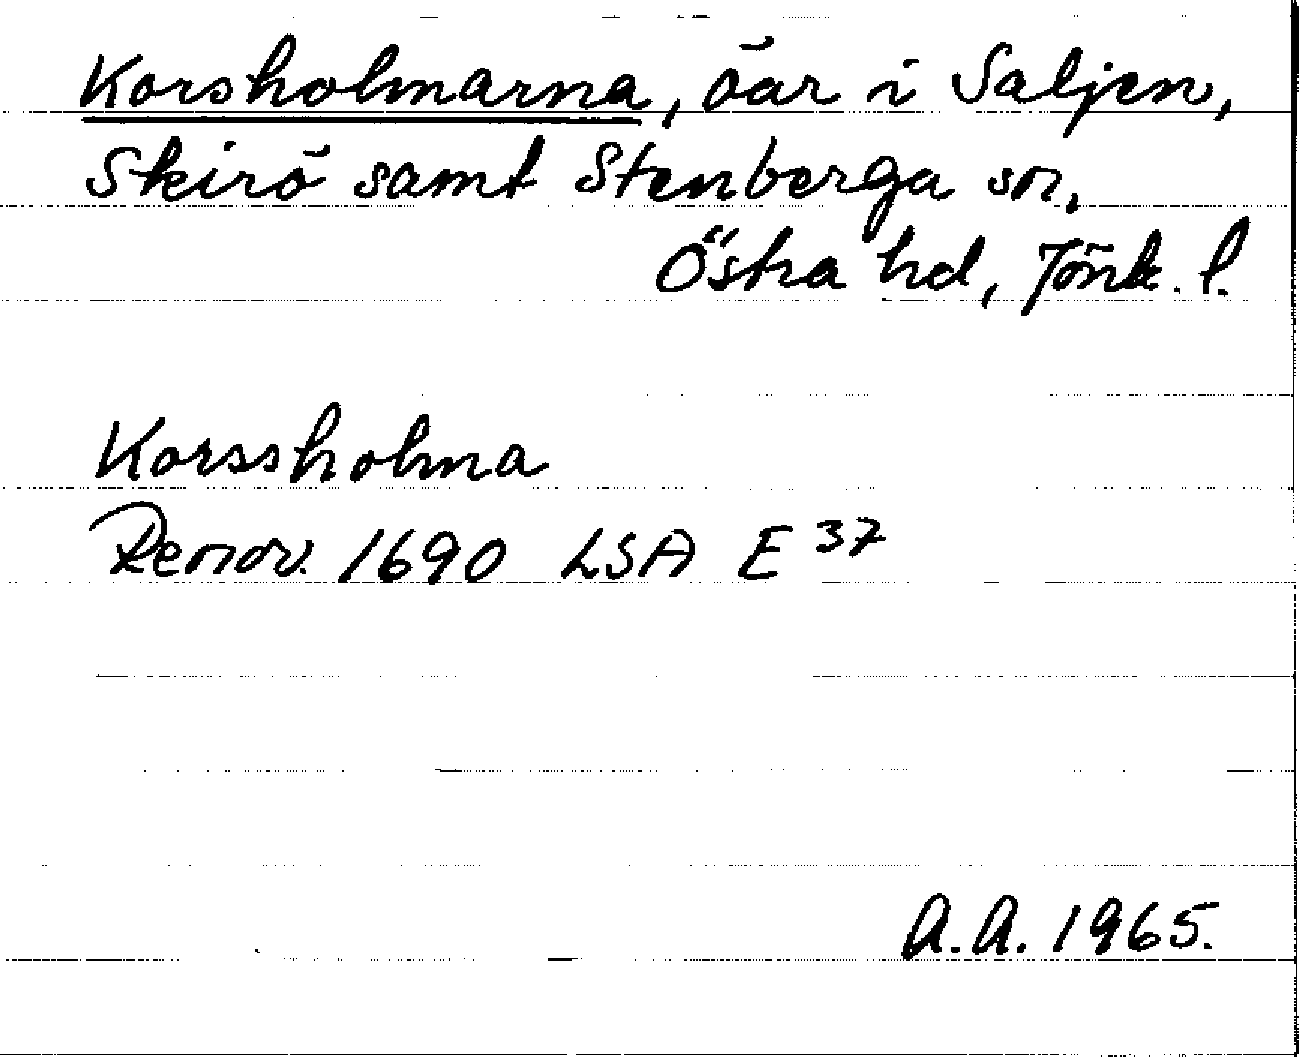 Korsholmarna, öar i Saljen,
Skirö samt Stenberga sn,
Östra hd, Jönk. l.
Korssholma
Renov. 1690 LSA E 37
A.A. 1965.